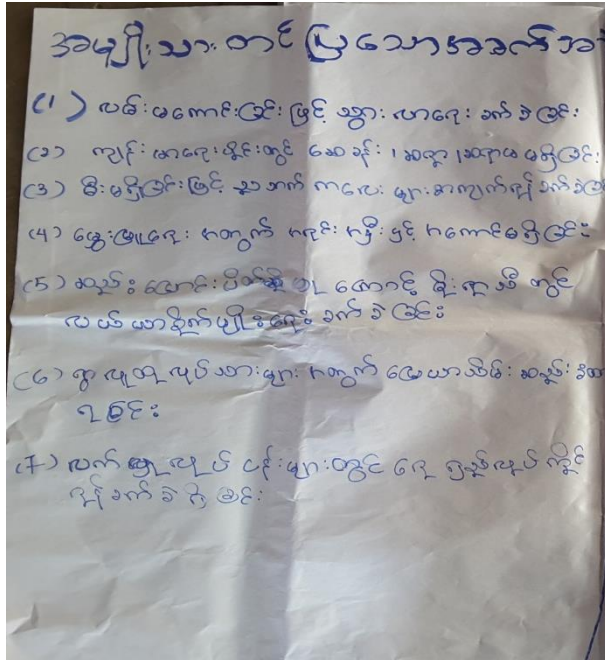 အမျိုးသား တင်ပြသောအခက်အ
(1) လမ်းမကောင်းခြင်းဖြင့် သွားလာရေး ခက်ခဲခြင်း
(2) ကျန်းမာရေးပိုင်းတွင် ဆေးခန်း၊ ဆရာ၊ ဆရာမ မရှိခြင်း
(3) မီးမရှိခြင်းဖြင့် သူငယ် ကလေးများ စာကျက်ရန် ခက်ခဲခြ
(4) မွေးမြူရေး အတွက် အရင်းအနှီးနှင့် အကောင်မရှိခြင်း
(5) ဆည်မြောင်းပိတ်ဆို့မှု ကြောင့် မိုးရာသီ တွင်
လယ်ယာစိုက်ပျိုးရေး ခက်ခဲခြင်း
(6) ရွာလူထုလုပ်သားများ အတွက် မြေယာသိမ်းဆည်းခံထား
ရခြင်း
(7) လက်မှုလုပ်ငန်းများတွင် ရေရှည်လုပ်ကိုင်
ရန် ခက်ခဲရှိခြင်း